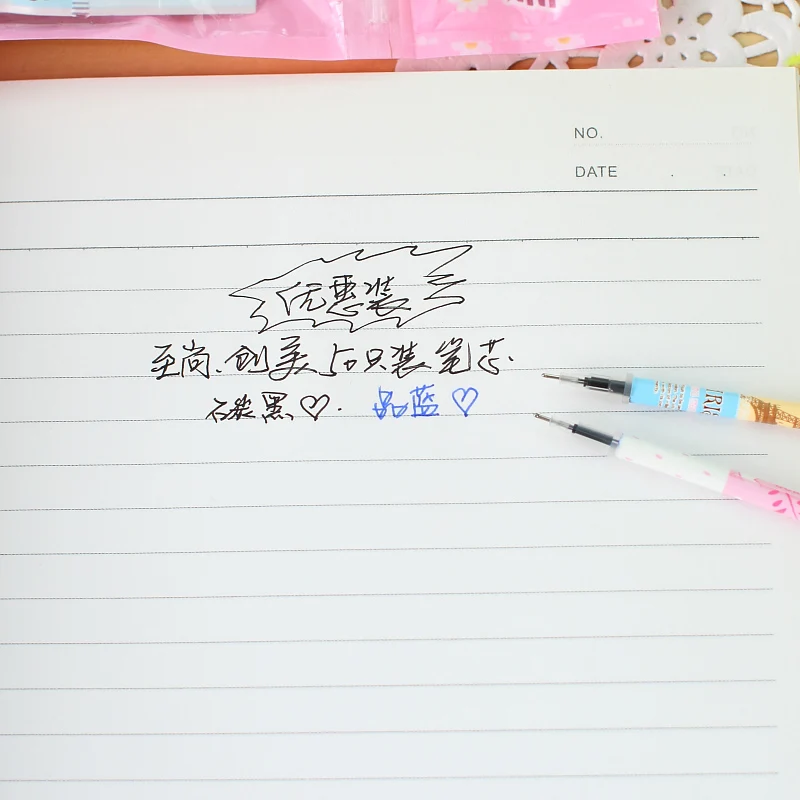 NO.
DATE . .
优惠装
至尚.创美50只装笔芯.
碳黑♡. 晶蓝♡